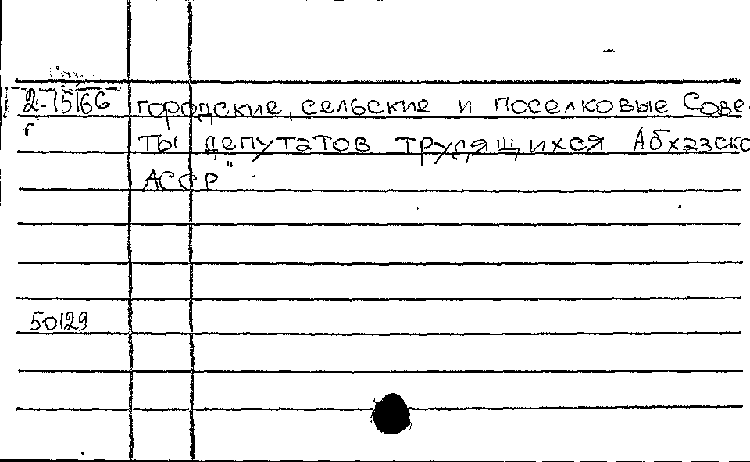 2-75166 городские, сельские и поселковые Сове
г ты депутатов трудящихся Абхазско
АССР"
50129